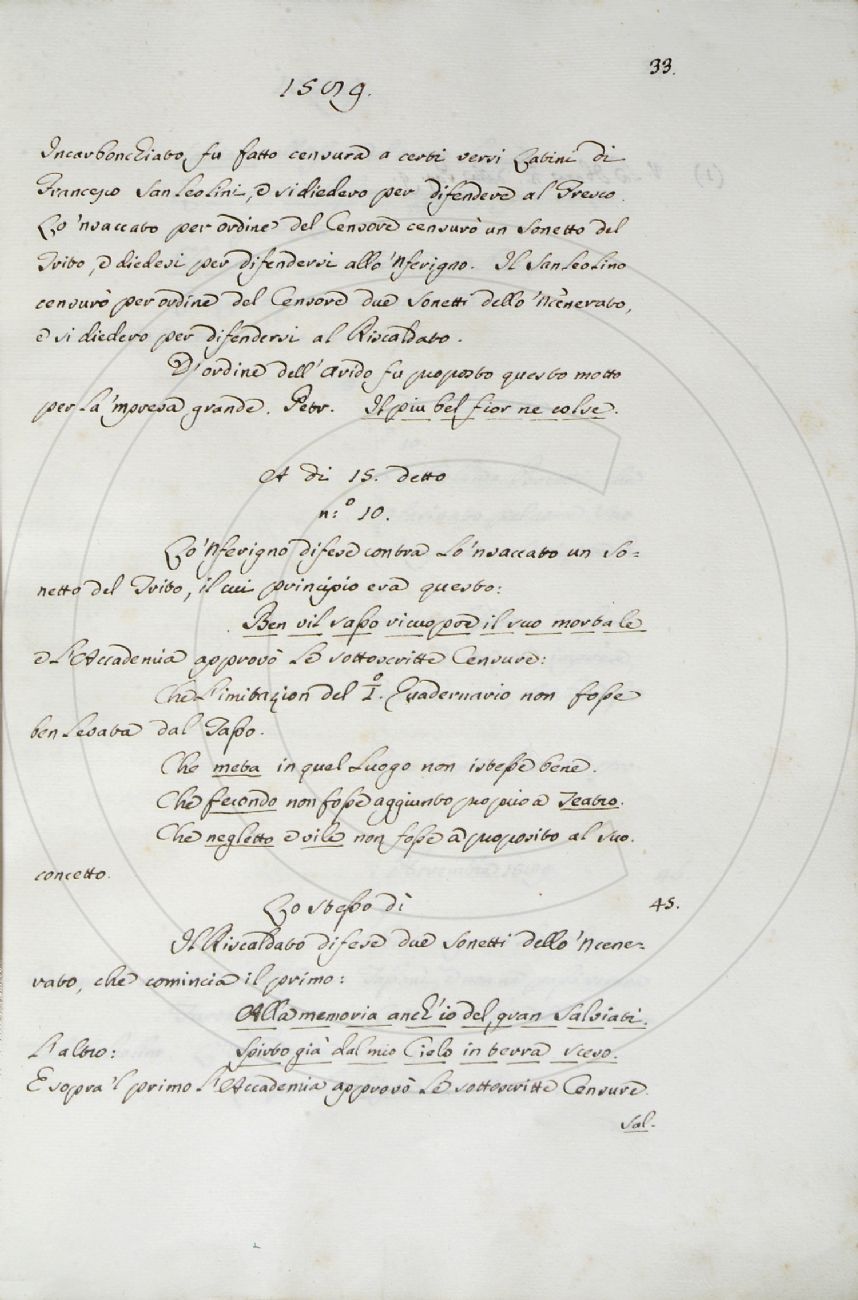 33.
1589.
Incarbonchiato fu fatto censura a certi versi Latini di
Francesco Sanleolini, e si diedero per difendere al Fresco.
Lo 'nsaccato per ordine del Censore censurò un Sonetto del
Trito, e diedesi per difendersi allo 'nferigno. Il Sanleolino
censurò per ordine del Censore due Sonetti dello 'ncenerato,
e si diedero per difendersi al Riscaldato.
D'ordine dell'Arido fu proposto questo motto
per la 'mpresa grande. Petr. Il più bel fior ne colse.
A di 15. detto
n:º 10.
Lo 'nferigno difese contra lo 'nsaccato un So=
netto del Trito, il cui principio era questo:
Ben vil sasso ricuopre il suo mortale
e l'Accademia approvò le sottoscritte Censure:
Che l'imitazion del I.º Quadernario non fosse
ben levata dal Tasso.
Che meta in quel luogo non istesse bene.
Che fecondo non fosse aggiunto proprio a Teatro.
Che negletto e vile non fosse a proposito al suo
concetto.
Lo stesso dì
45.
Il Riscaldato difese due Sonetti dello 'ncene-
rato, che comincia il primo:
Alla memoria anch'io del gran Salviati.
L'altro: Spirto già dal mio Cielo in terra sceso.
E sopra 'l primo l'Accademia approvò le sottoscritte Censure.
Sal-